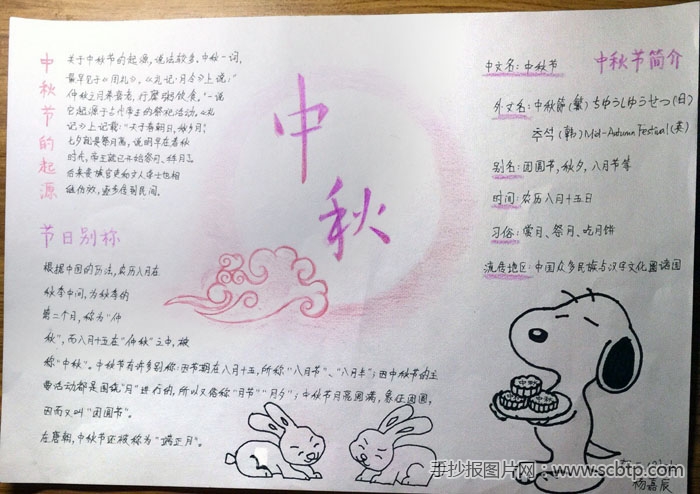 中秋节的起源
关于中秋节的起源,说法较多,中秋一词,
最早见于《周礼》。《礼记·月令》上说:"
仲秋之月养衰老,行糜粥饮食。"一说
它起源于古代帝王的祭祀活动。《礼
记》上记载:"天子春朝日,秋夕月。"
夕月就是祭月亮,说明早在春秋
时代,帝王就已开始祭月、拜月了。
后来贵族官吏和文人学士也相
继仿效,逐步传到民间。
节日别称
根据中国的历法,农历八月在
秋季中间,为秋季的
第二个月,称为"仲
秋",而八月十五在"仲秋"之中,被
称"中秋"。中秋节有许多别称:因节期在八月十五,所称"八月节"、"八月半";因中秋节的主
要活动都是围绕"月"进行的,所以又俗称"月节""月夕";中秋节月亮圆满,象征团圆,
因而又叫"团圆节"。
在唐朝,中秋节还被称为"端正月"。
中秋
中秋节简介
中文名:中秋节
外文名:中秋節(繁)ちゅうしゅうせつ(日)
추석(韩)Mid-Autumn Festival(英)
别名:团圆节,秋夕,八月节等
时间:农历八月十五日
习俗:赏月、祭月、吃月饼
流传地区:中国众多民族与汉字文化圈诸国
中秋
中秋
中秋
杨嘉辰
手抄报图片网:www.scbtp.com